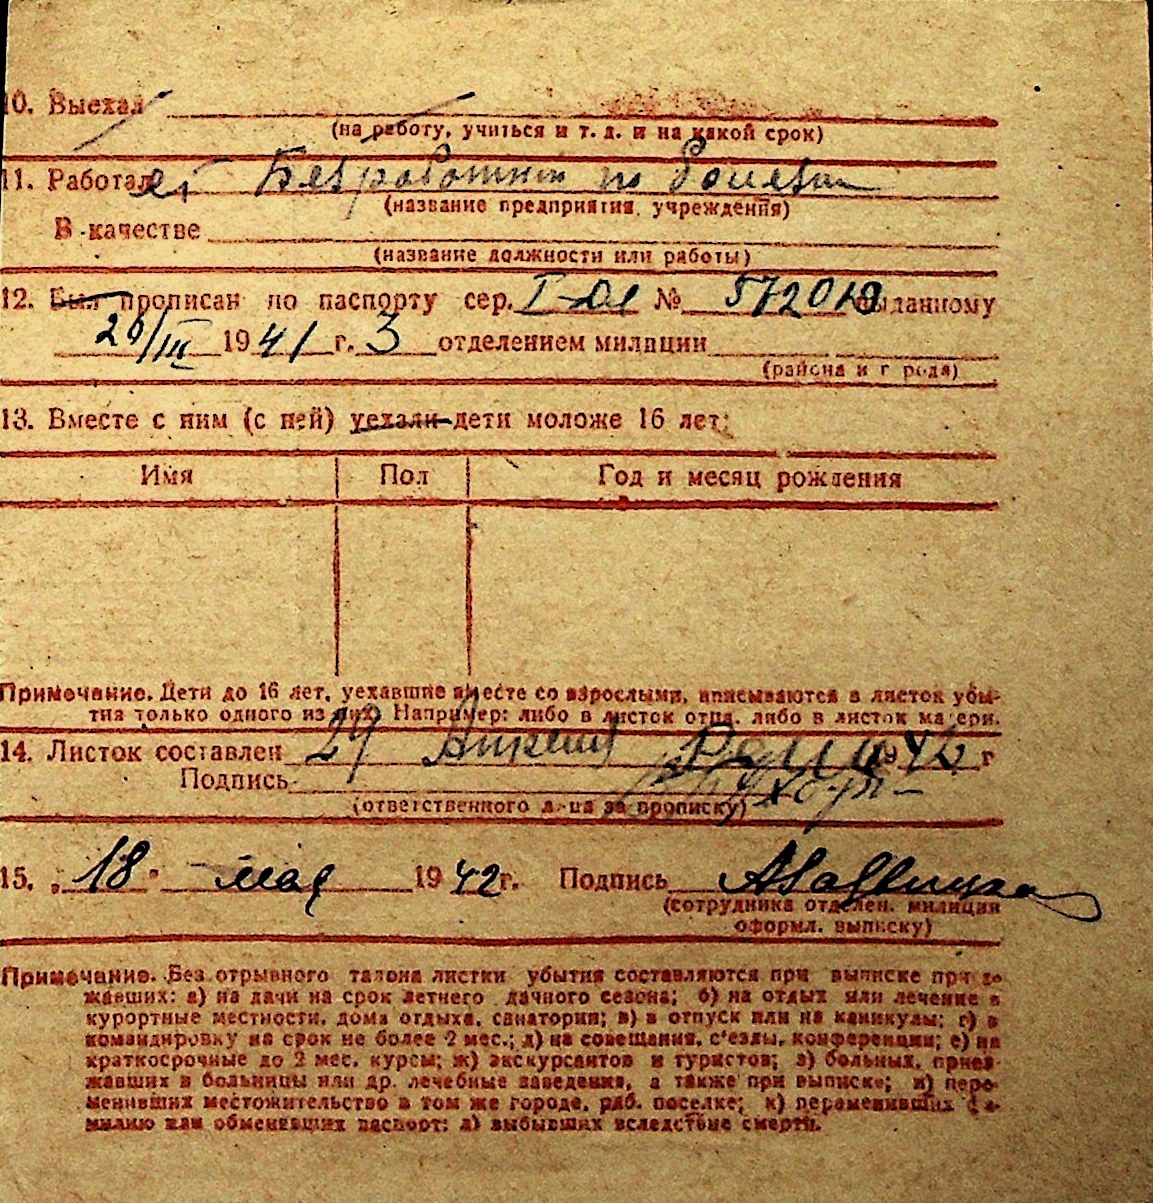 10. Выехал
(на работу, учиться и т. д. и на какой срок)
11. Работает Безработный по болезни
(название предприятия, учреждения)
В качестве
(название должности или работы)
12. Был прописан по паспорту сер. I-ОЯ № 572010 выданному
26/III 1941 г. 3 отделением милиции
(района и города)
13. Вместе с ним (с ней) уехали дети моложе 16 лет:
Имя Пол Год и месяц рождения
Примечание. Дети до 16 лет, уехавшие вместе со взрослыми, вписываются в листок убы-
тия только одного из них. Например: либо в листок отца, либо в листок матери.
14. Листок составлен 29 Апреля 1942 г
Подпись
(ответственного лица за прописку)
15. „18" мая 1942 г. Подпись
(сотрудника отделен. милиции
оформл. выписку)
Примечание. Без отрывного талона листки убытия составляются при выписке приез-
жавших: а) на дачи на срок летнего дачного сезона; б) на отдых или лечение в
курортные местности, дома отдыха, санатории; в) в отпуск или на каникулы; г) в
командировку на срок не более 2 мес.; д) на совещания, с'езды, конференции; е) на
краткосрочные до 2 мес. курсы; ж) экскурсантов и туристов; з) больных, приез-
жавших в больницы или др. лечебные заведения, а также при выписке; и) пере-
менивших местожительство в том же городе, раб. поселке; к) переменивших фа-
милию или обменявших паспорт; л) выбывших вследствие смерти.